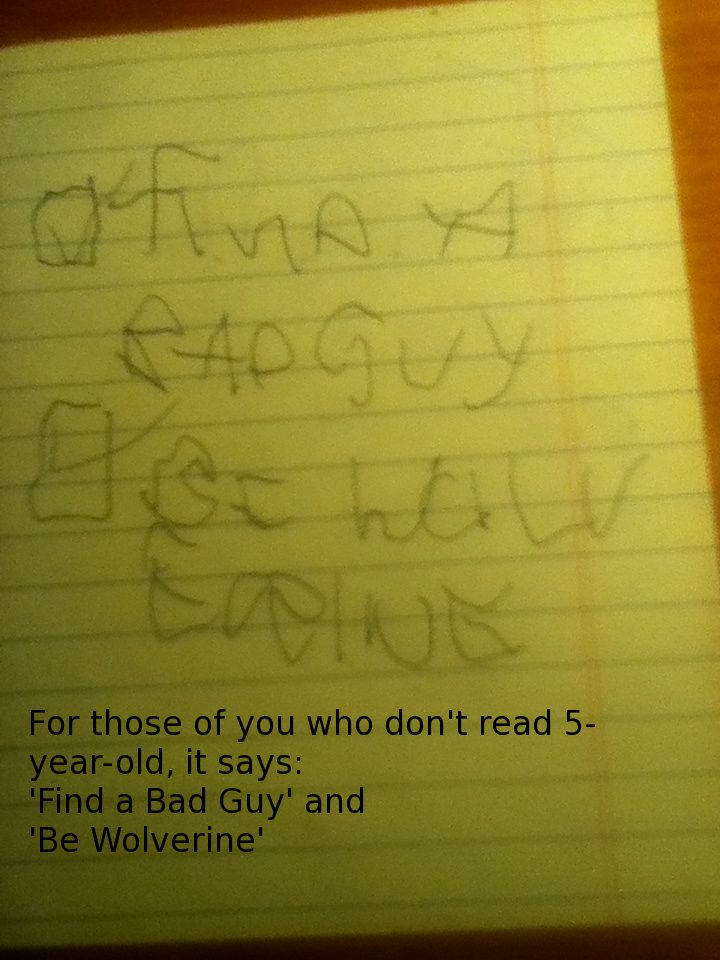 FinD. A
BAD GUY
BE WOLV
ERINE
For those of you who don't read 5-
year-old, it says:
'Find a Bad Guy' and
'Be Wolverine'